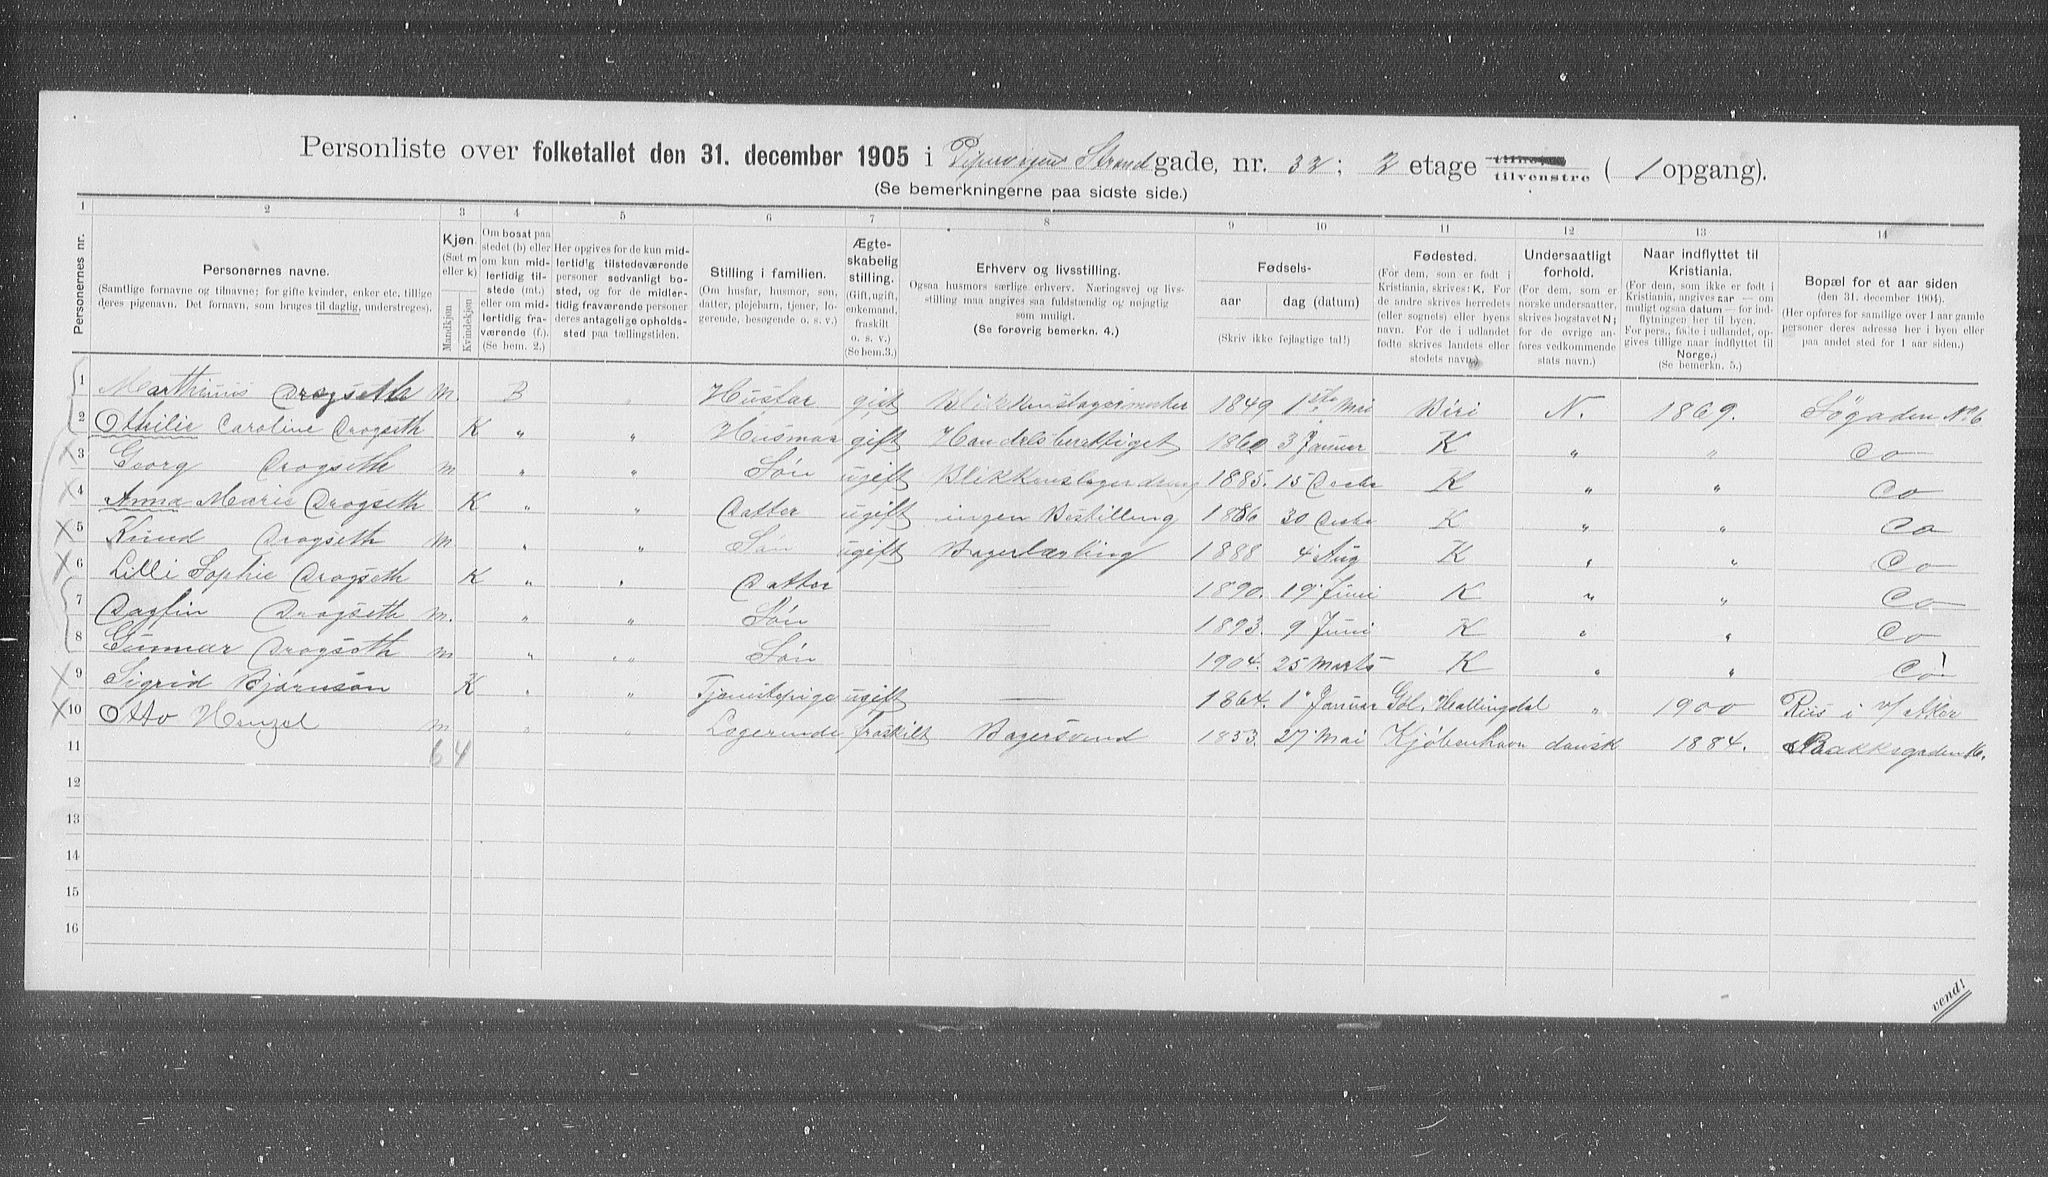 Personliste over folketallet den 31. december 1905 i Pipervigens Strandgade, nr. 32; 2 etage tilvenstre ( 1 opgang).
(Se bemerkningerne paa sidste side.)
1 2 3 4 5 6 7 8 9 10 11 12 13 14
Personernes nr.
Personernes navne.
(Samtlige fornavne og tilnavne; for gifte kvinder, enker etc. tillige deres pigenavn. Det fornavn, som bruges til daglig, understreges).
Kjøn. (Sæt m eller k)
Mandkjøn Kvindekjøn
Om bosat paa stedet (b) eller om kun midlertidig tilstede (mt.) eller om midlertidig fraværende (f.). (Se bem. 2.)
Her opgives for de kun midlertidig tilstedeværende personer sedvanligt bosted, og for de midlertidig fraværende personer deres antagelige opholdssted paa tællingstiden.
Stilling i familien.
(Om husfar, husmor, søn, datter, plejebarn, tjener, logerende, besøgende o. s. v.)
Ægteskabelig stilling.
(Gift, ugift, enkemand, fraskilt o. s. v.) (Se bem. 3.)
Erhverv og livsstilling.
Ogsaa husmors særlige erhverv. Næringsvej og livsstilling maa angives saa fuldstændig og nøjagtig som muligt.
(Se forøvrig bemerkn. 4.)
Fødsels-
aar dag (datum)
(Skriv ikke fejlagtige tal!)
Fødested.
(For dem, som er født i Kristiania, skrives: K. For de andre skrives herredets (eller sognets) eller byens navn. For de i udlandet fødte skrives landets eller stedets navn.
Undersaatligt forhold.
(For dem, som er norske undersaatter, skrives bogstavet N; for de øvrige anføres vedkommende stats navn.)
Naar indflyttet til Kristiania.
(For dem, som ikke er født i Kristiania, angives aar — om muligt ogsaa datum — for indflytningen her til byen. For pers., fødte i udlandet, opgives tillige naar indflyttet til Norge.)
(Se bemerkn. 5.)
Bopæl for et aar siden
(den 31. december 1904).
(Her opføres for samtlige over 1 aar gamle personer deres adresse her i byen eller paa andet sted for 1 aar siden.)
1 Marthinus Drogseth m. B " Husfar gift Blikkenslagermester 1849 1ste Mai Biri N. 1869. Søgaden No 6
2 Othilie Caroline Drogseth K " " Husmor gift Handelsberettiget 1860 3 Januar K " " Do
3 Georg Drogseth m " " Søn ugift Blikkenslagerdreng 1885. 15 Decbr K " " Do
4 Anna Marie Drogseth K " " Datter ugift ingen Bestilling 1886 30 Decbr K " " Do
5 Knud Drogseth m " " Søn ugift Bagerlærling 1888 4 Aug K " " Do
6 Lilli Sophie Drogseth K " " Datter 1890. 19 Juni K " " Do
7 Dagfin Drogseth m. " " Søn — 1893. 9 Juni K " " Do
8 Gunnar Drogseth m " " Søn — 1904. 25 Marts K " " Do
9 Sigrid Bjørnsøn K " " Tjenistepige ugift — 1864. 1 Januar Gol. Hallingdal " 1900 Riis i V/ Aker
10 Otto Henzel m " " Logerende fraskilt Bagersvend 1853. 27 Mai Kjøbenhavn dansk 1884. Bakkegaden 16.
11 6 4
12
13
14
15
16
vend!